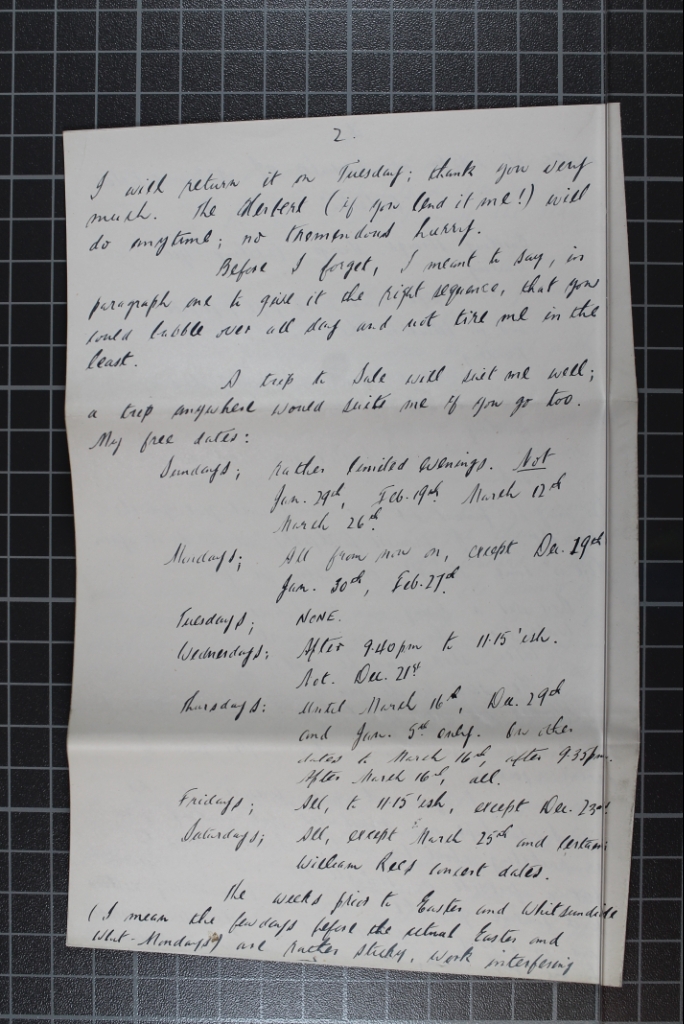 2.
I will return it on Tuesday; thank you very
much. The Herbert (if you lend it me!) will
do anytime; no tremendous hurry.
Before I forget, I meant to say, in
paragraph one to give it the right sequence, that you
could bubble over all day and not tire me in the
least.
A trip to Sale will suit me well;
a trip anywhere would suite me if you go too.
My free dates:
Sundays; rather limited evenings. Not
Jan. 29th, Feb. 19th March 12th
March 26th.
Mondays; All from now on, except Dec. 19th
Jan. 30th, Feb. 27th.
Tuesdays; NONE.
Wednesdays: After 9.40pm to 11.15'ish.
Not. Dec. 21st
Thursdays: Until March 16th, Dec. 29th
and Jan. 5th only. On other
dates to March 16th, after 9.35pm.
After March 16th, all.
Fridays; All, to 11.15'ish, except Dec. 23rd
Saturdays; All, except March 25th and certain
William Rees concert dates.
The weeks prior to Easter and Whitsuntide
(I mean the few days before the actual Easter and
Whit-Mondays) are rather sticky, work interfering